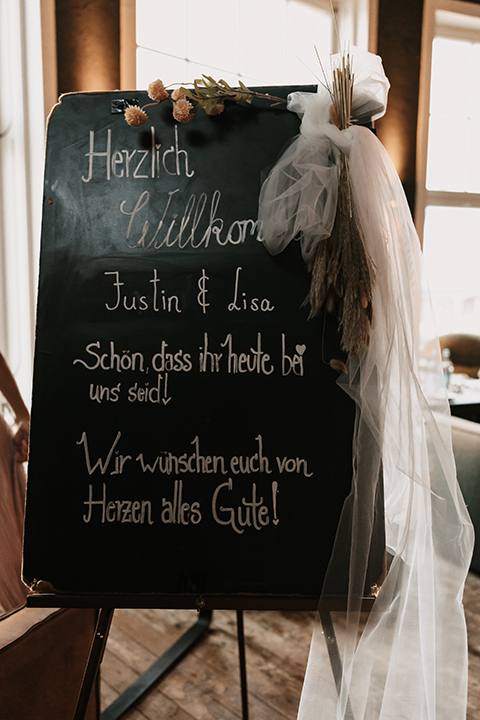 Herzlich
Willkom
Justin & Lisa
Schön, dass ihr heute bei
uns seid!
Wir wünschen euch von
Herzen alles Gute!